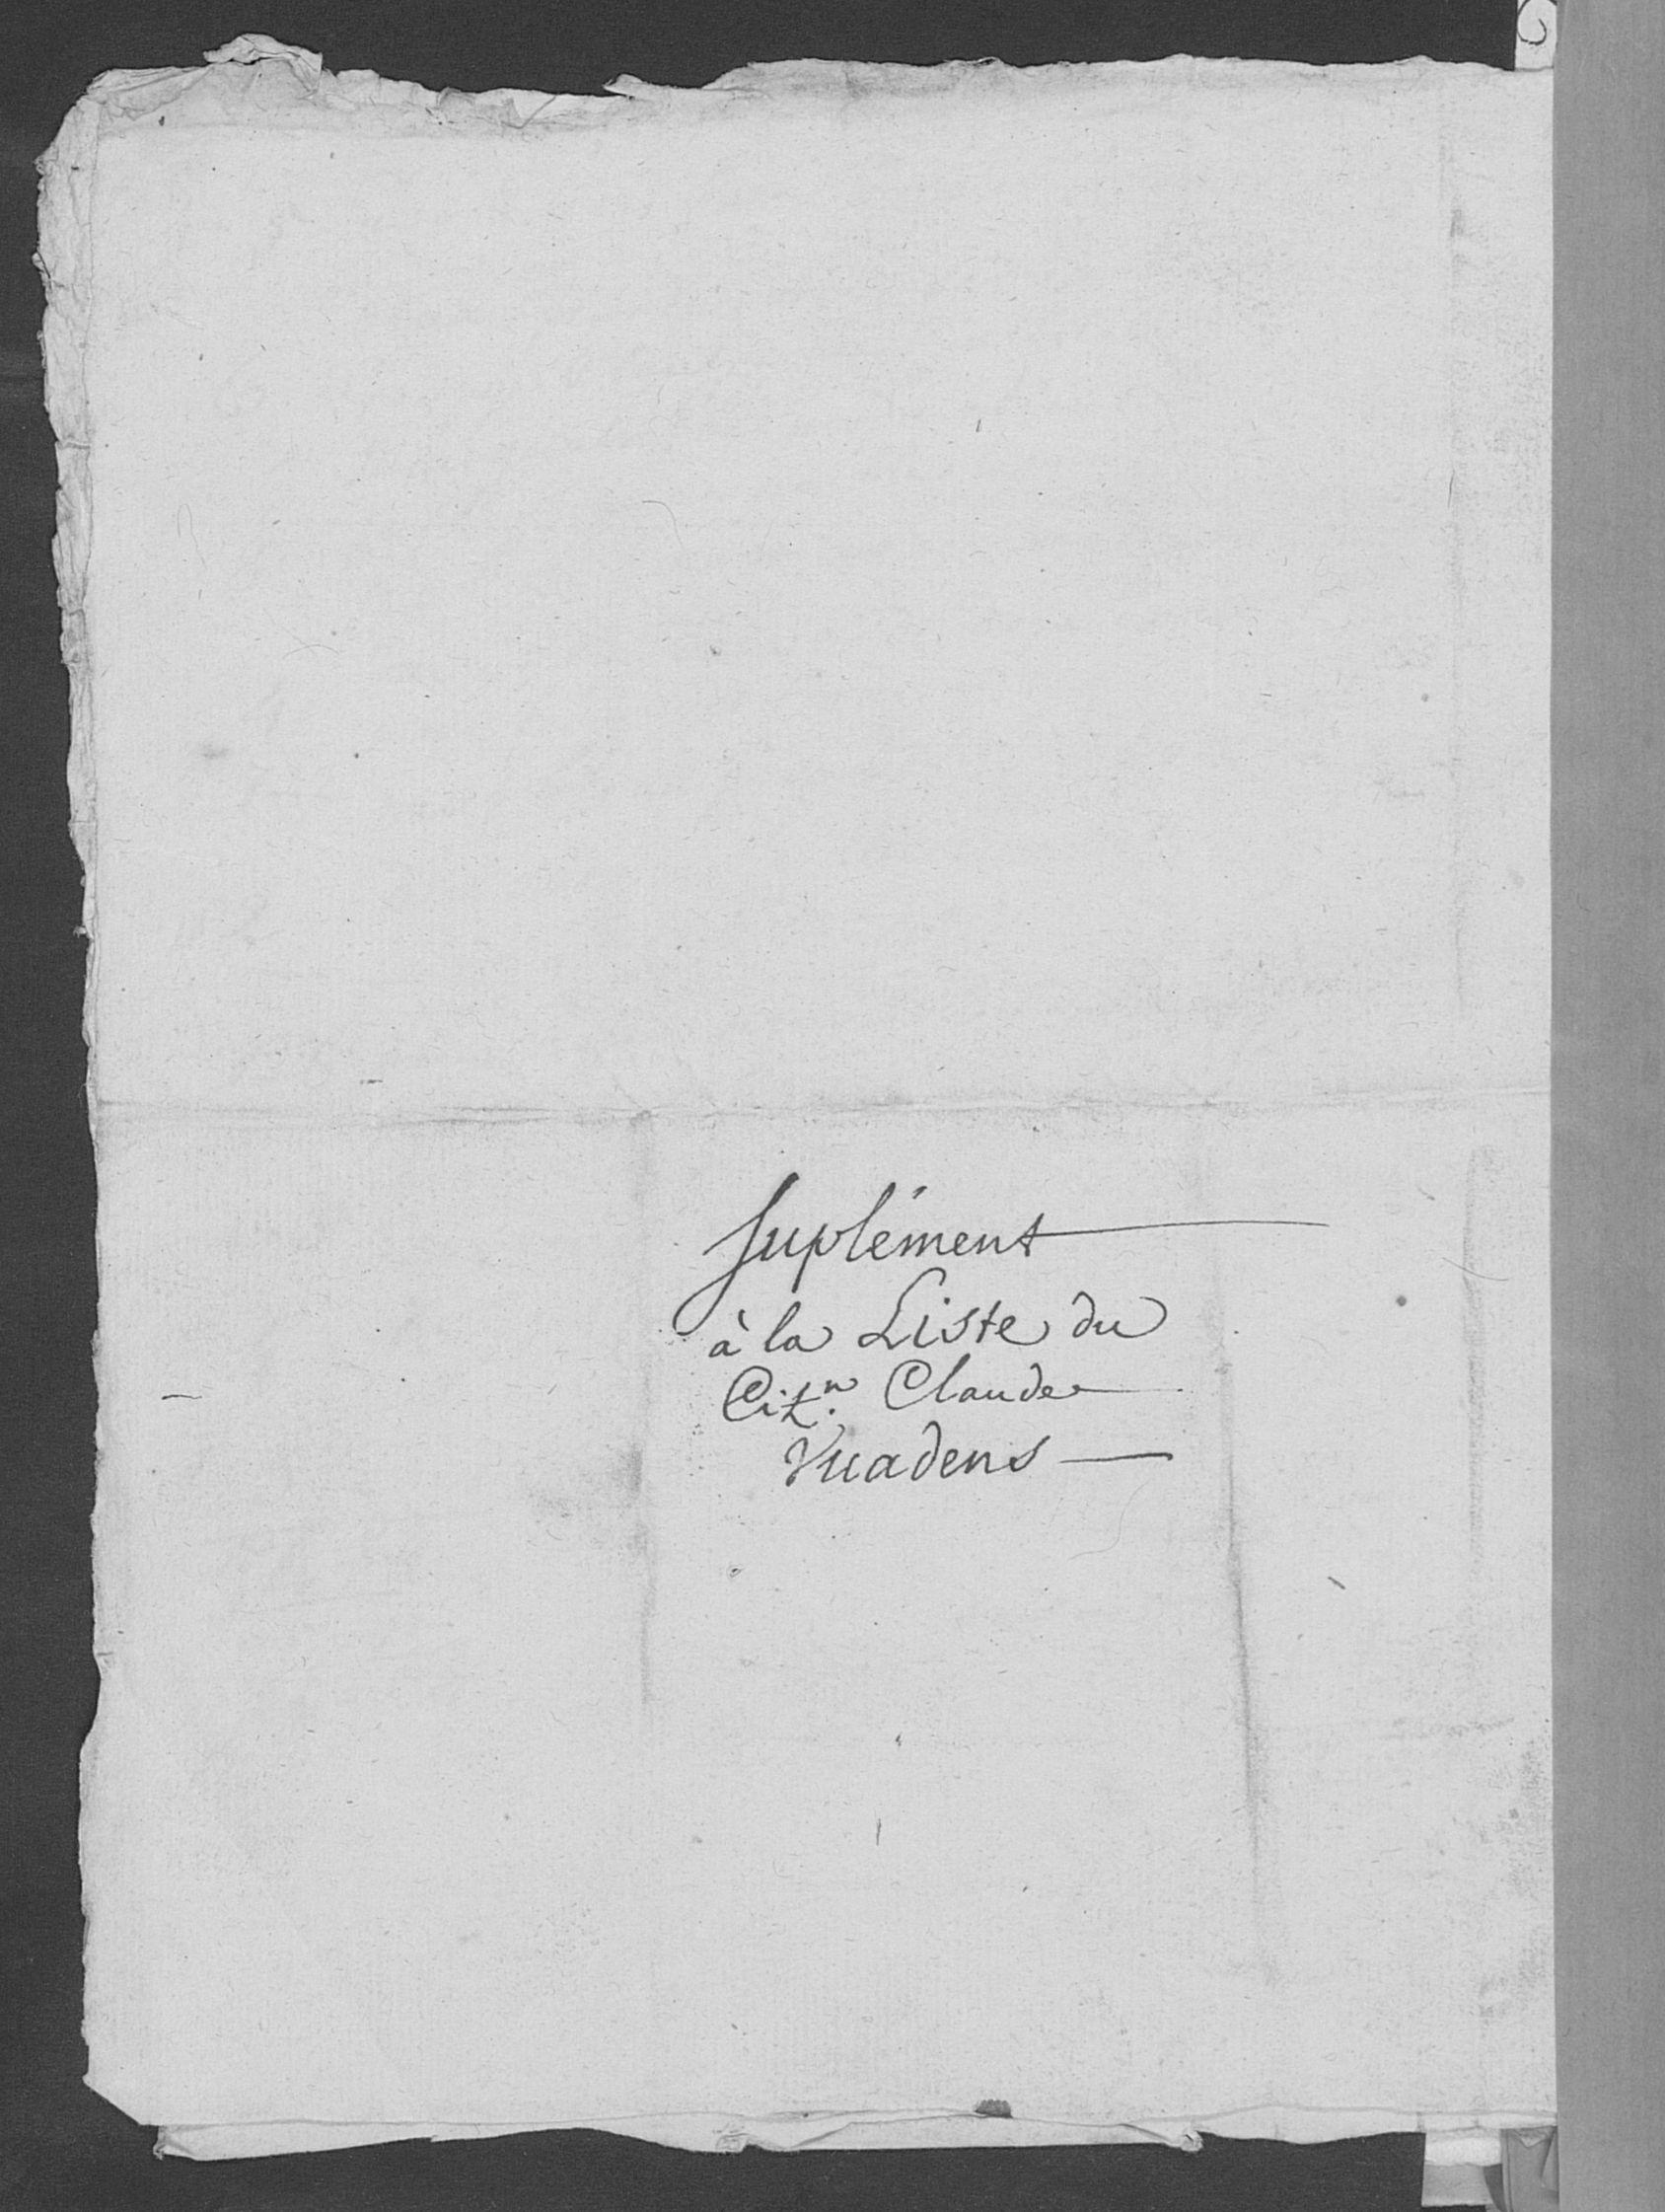 Suplément
à la Liste du
Cit.n Claude
Vuadens